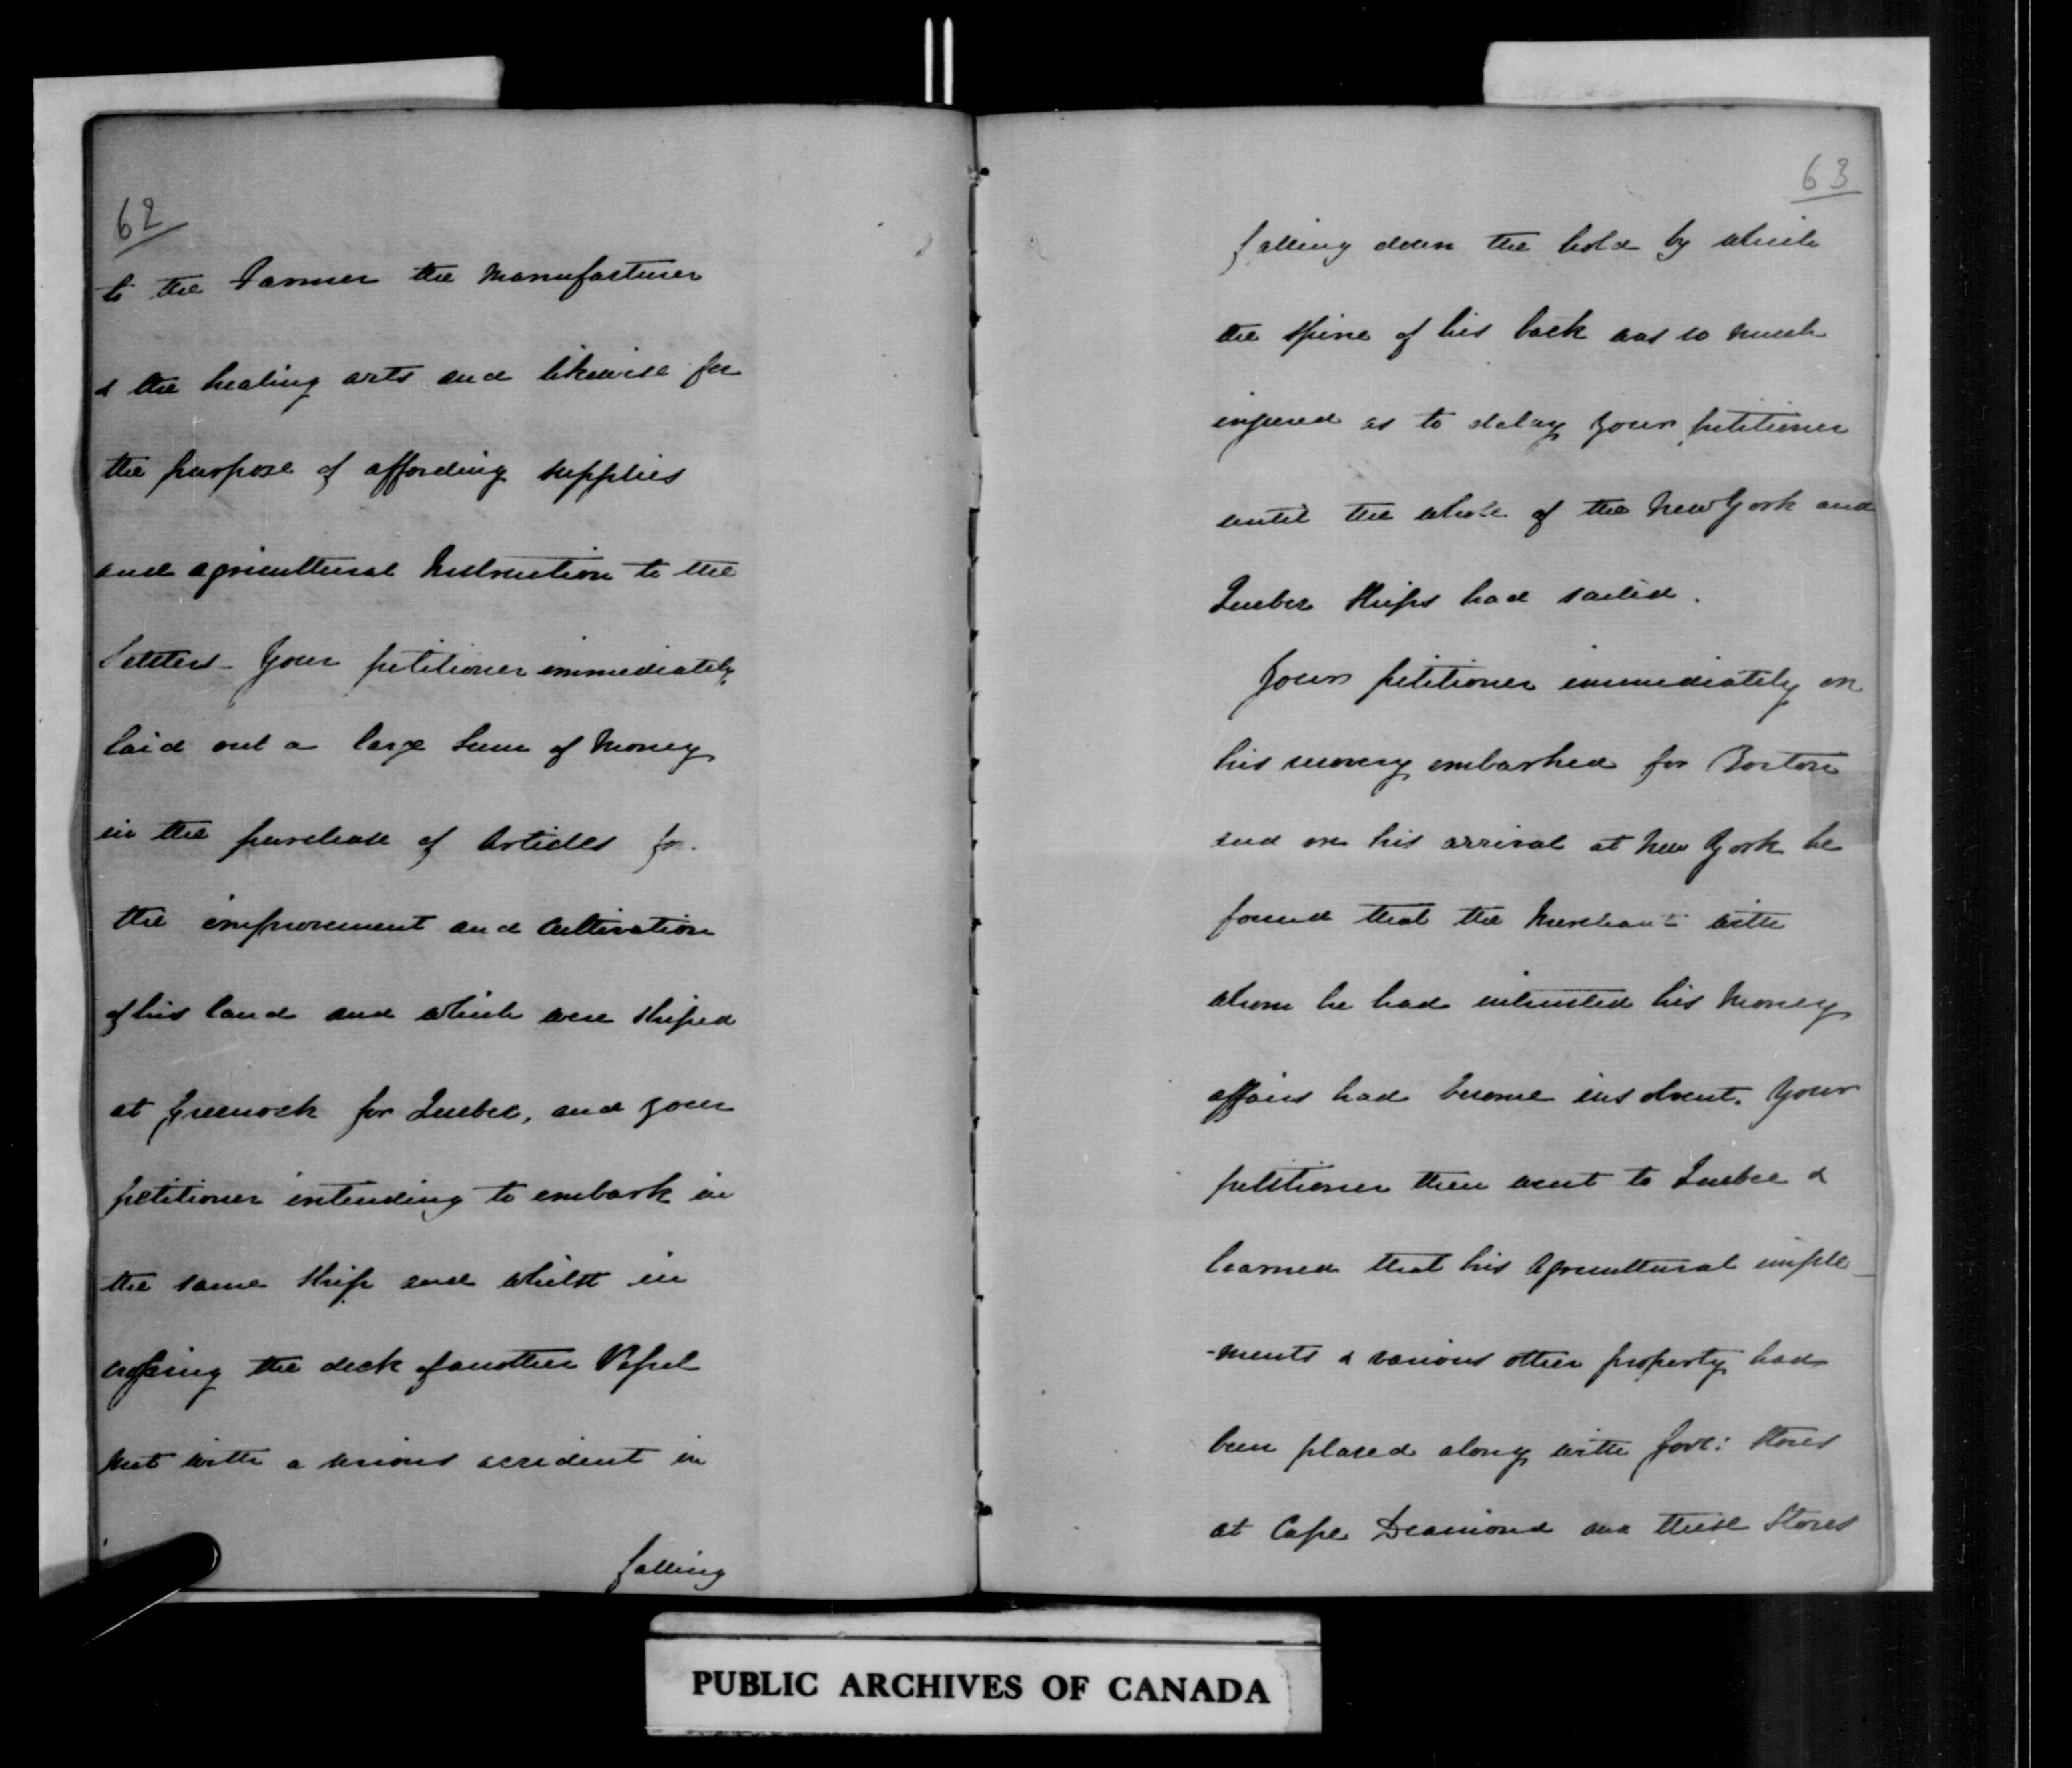 62
to the Farmer the Manufacturer
& the healing arts and likewise for
the purpose of affording supplies
and agricultural Instruction to the
Settlers - Your petitioner immediately
laid out a large Sum of Money
in the purchase of Articles for
the improvement and Cultivation
of his land and which were Shiped
at Greenock for Quebec, and your
petitioner intending to embark in
the same Ship and whilst in
crossing the deck of another Vessel
met with a serious accident in
falling
63
falling down the hold by which
the Spine of his back was so much
injured as to delay your petitioner
until the whole of the New York and
Quebec Ships had sailed.
Your petitioner immediately on
his recovery embarked for Boston
and on his arrival at New York he
found that the Merchant with
whom he had intrusted his Money
affairs had become insolvent. Your
petitioner then went to Quebec &
learned that his Agricultural imple-
-ments & various other property had
been placed along with Govt: Stores
at Cape Diamond and these Stores
PUBLIC ARCHIVES OF CANADA